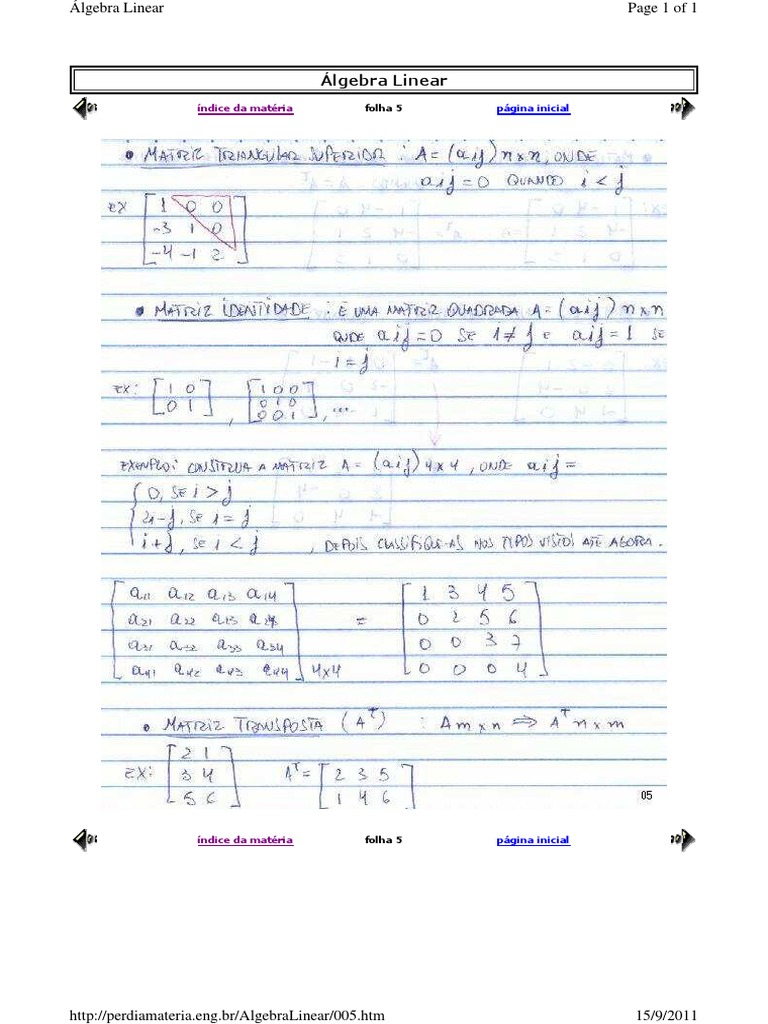 Álgebra Linear Page 1 of 1
Álgebra Linear
índice da matéria folha 5 página inicial
• MATRIZ TRIANGULAR SUPERIOR : A = (aij) n×n, ONDE
aij = 0 QUANDO i < j
EX [ 1 0 0
-3 1 0
-4 -1 2 ]
• MATRIZ IDENTIDADE : E UMA MATRIZ QUADRADA A = (aij) n×n
ONDE aij = 0 SE 1 ≠ j E aij = 1 SE
i = j
EX: [ 1 0 [ 1 0 0
0 1 ] , 0 1 0
0 0 1 ] , ...
EXEMPLO: CONSTRUA A MATRIZ A = (aij) 4×4 , ONDE aij =
{ 0, SE i > j
2i-j, SE i = j
i+j, SE i < j , DEPOIS CLASSIFIQUE-AS NOS TIPOS VISTOS ATÉ AGORA.
[ a11 a12 a13 a14 [ 1 3 4 5
a21 a22 a23 a24 = 0 2 5 6
a31 a32 a33 a34 0 0 3 7
a41 a42 a43 a44 ] 4×4 0 0 0 4 ]
• MATRIZ TRANSPOSTA (Aᵀ) : Am×n ⇒ Aᵀ n×m
EX: [ 2 1
3 4
5 6 ] Aᵀ = [ 2 3 5
1 4 6 ]
05
índice da matéria folha 5 página inicial
http://perdiamateria.eng.br/AlgebraLinear/005.htm 15/9/2011